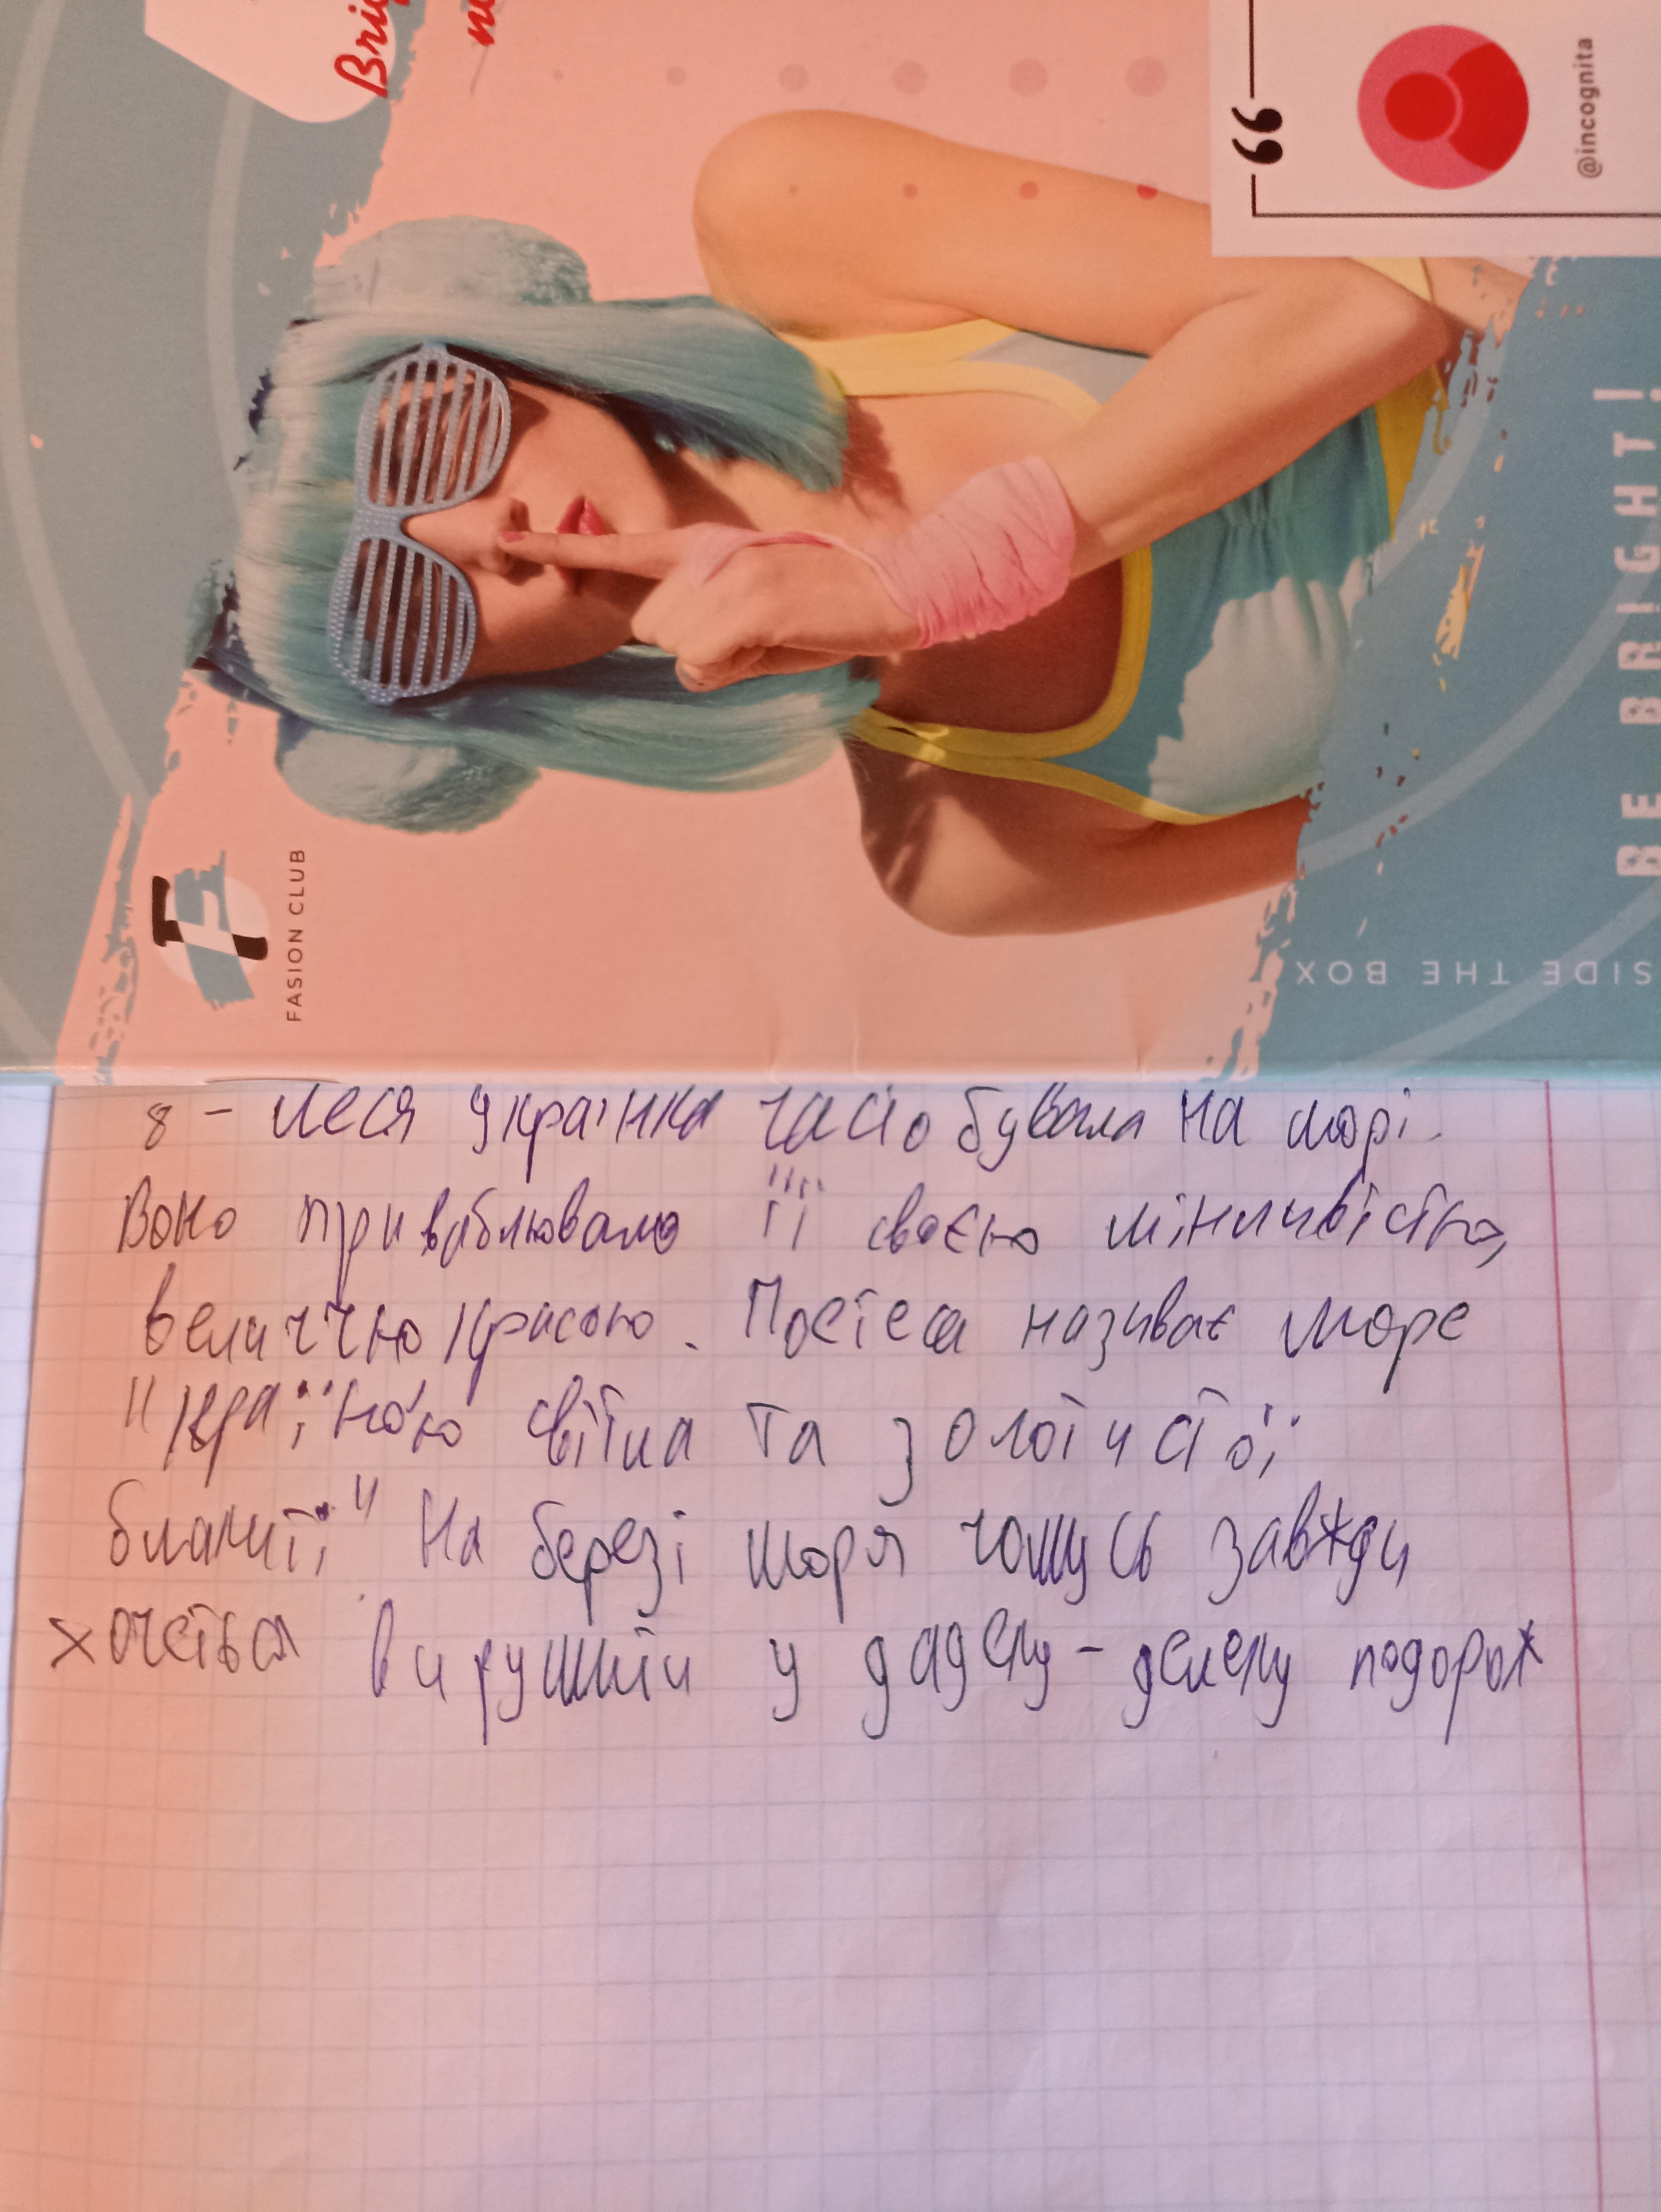 Brig
@incognita
BE BRIGHT!
SIDE THE BOX
F
FASION CLUB
8 - Леся Українка часто бувала на морі.
Воно приваблювало її своєю мінливістю,
величчю красою. Поетеса називає море
"країною світла та золотистої
блакиті" На березі моря чомусь завжди
хочеться вирушити у далеку-далеку подорож